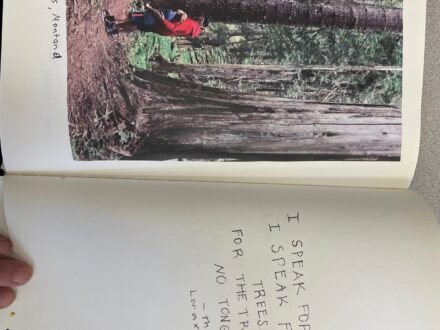 s, Montana
I SPEAK FOR
I SPEAK F
TREES
FOR THE TR
NO TONG
– Th
Lorax